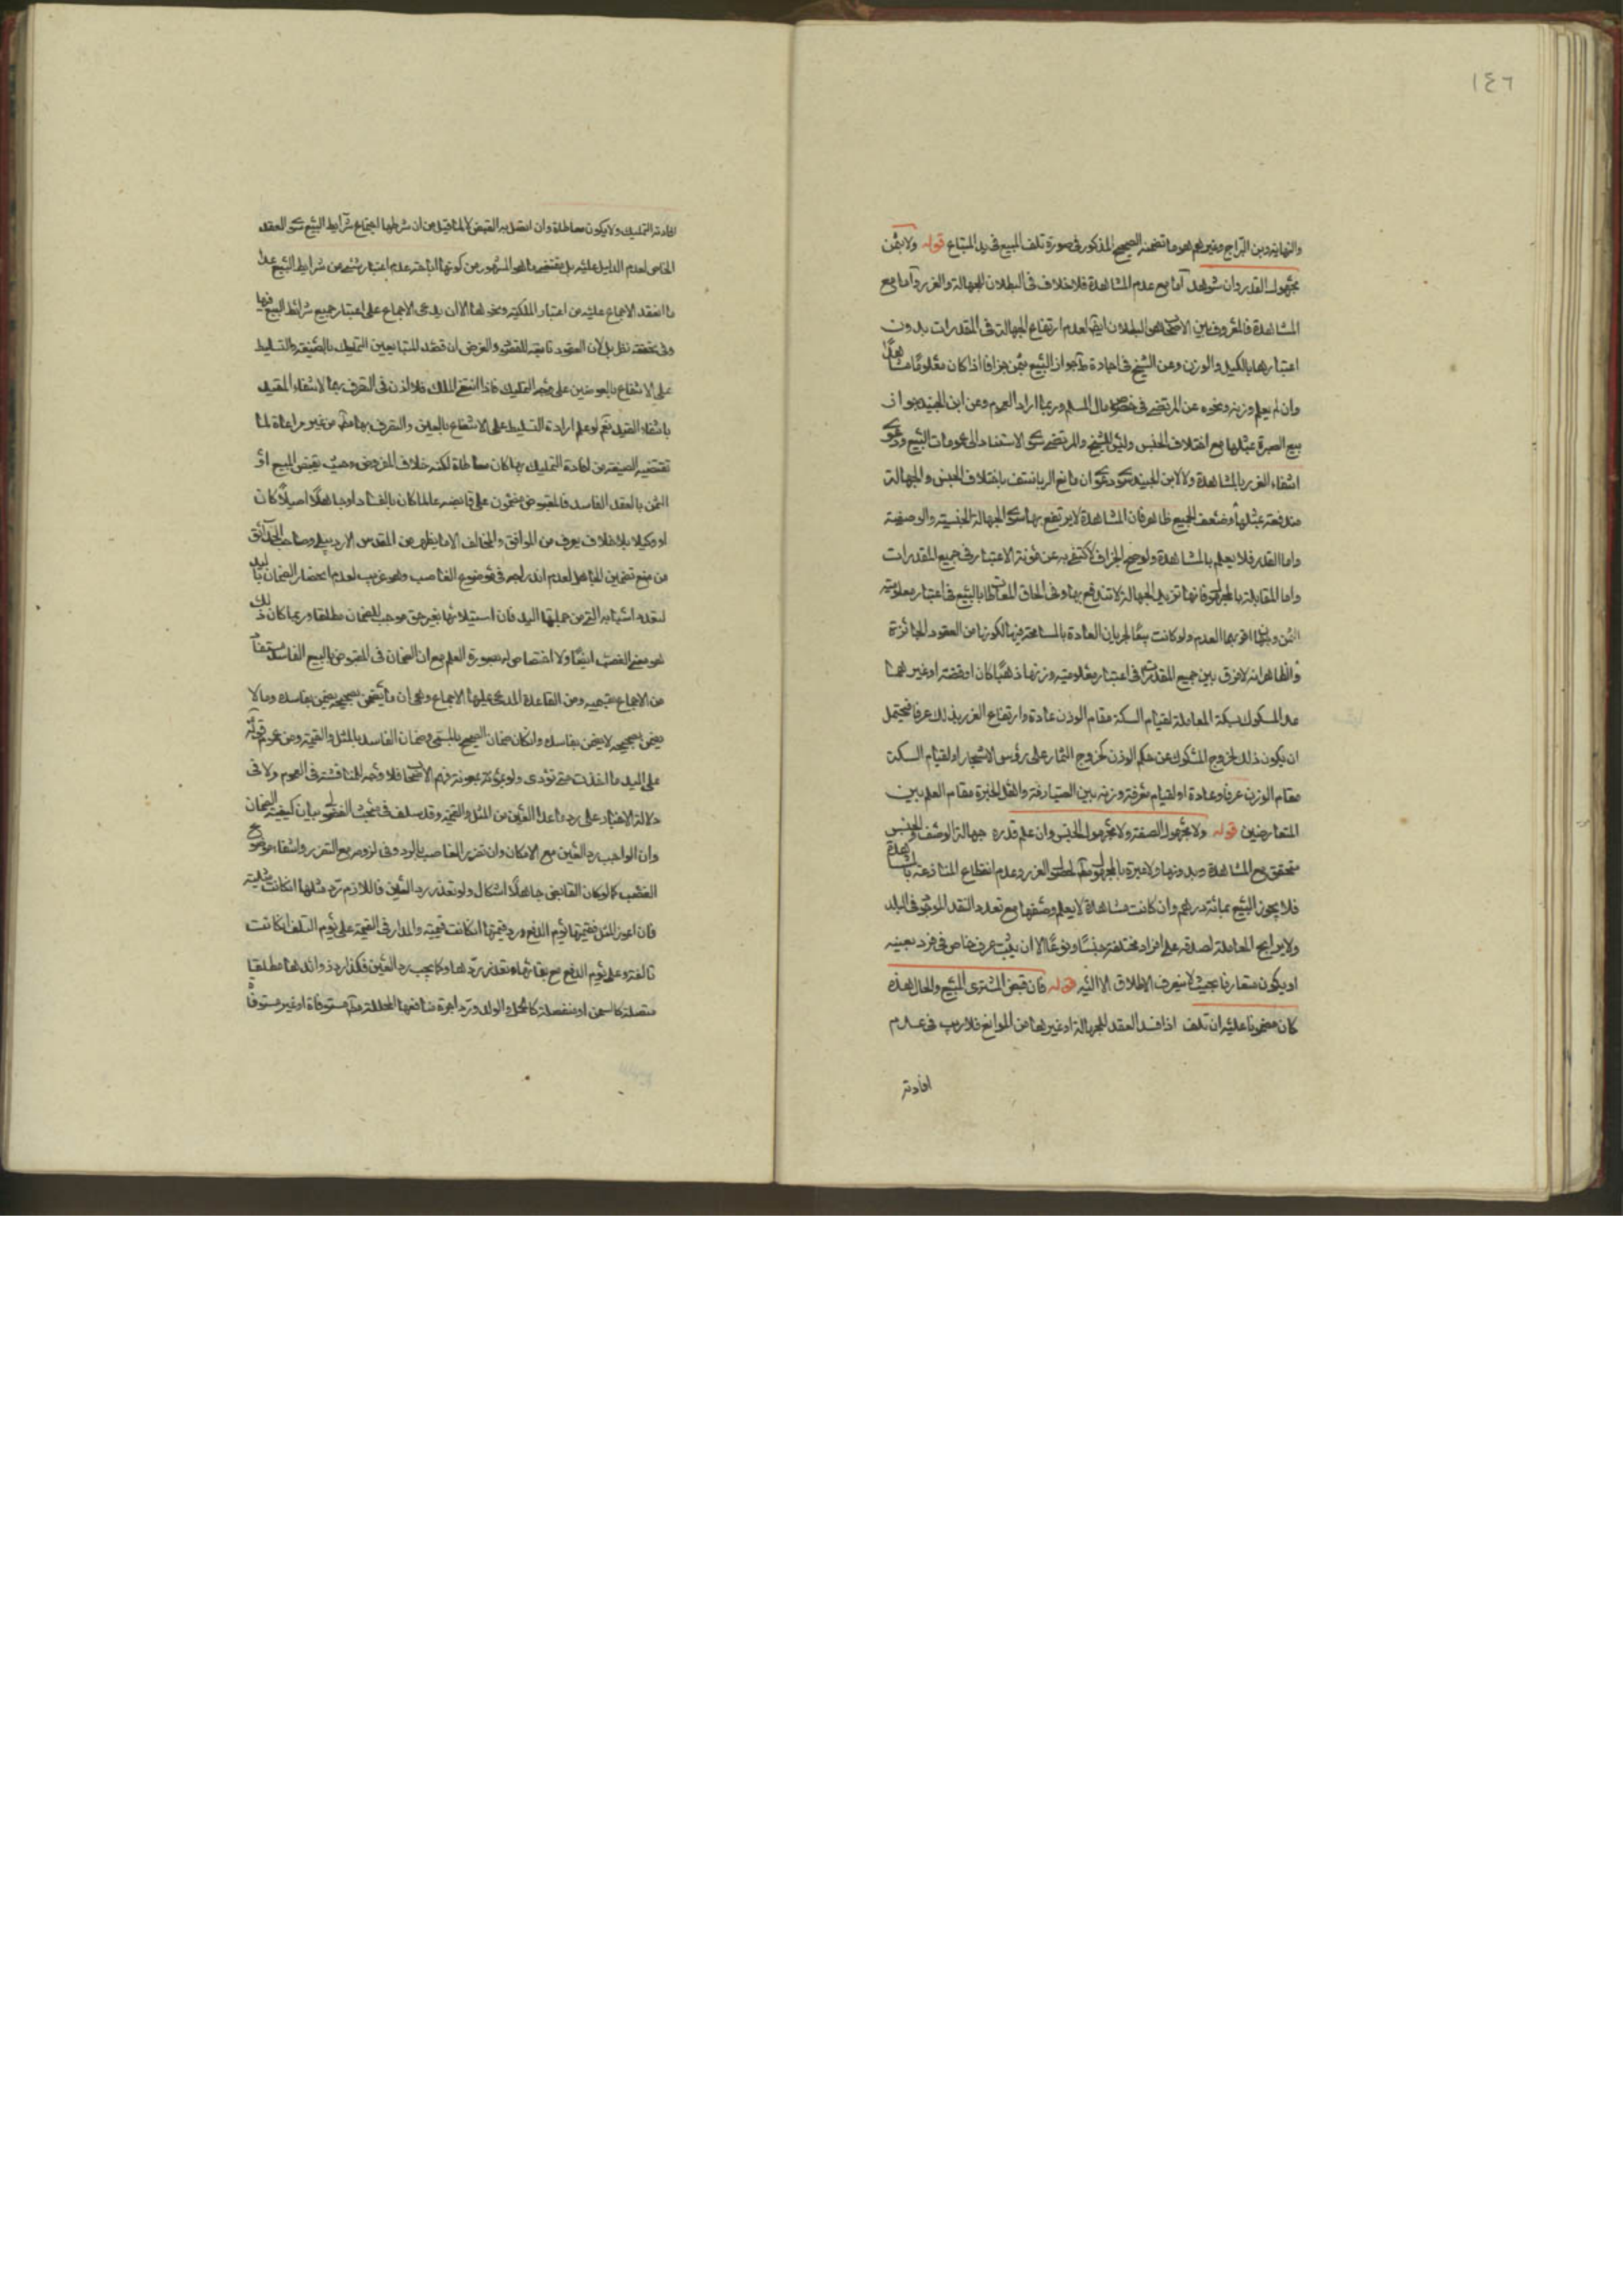 ١٤٦
والنهاية وبن البراج وغيرهم هو ما تضمنه الصحيح المذكور فى صورة تلف المبيع فى يد المبتاع قوله ولا بثمن
مجهول القدر وان شوهد اما مع عدم المشاهدة فلا خلاف فى البطلان للجهالة والغرر واما مع
المشاهدة فالمعروف بين الاصحاب هو البطلان ايضا لعدم ارتفاع الجهالة فى المقدرات بدون
اعتبارها بالكيل والوزن وعن الشيخ فى اجارة ط جواز البيع بثمن جزافا اذا كان معلوما مشاهدا
وان لم يعلم وزنه ونحوه عن المرتضى فى خصوص مال السلم وربما اراد العموم وعن ابن الجنيد جواز
بيع الصبرة بمثلها مع اختلاف الجنس وليس للشيخ والمرتضى سوى الاستناد الى عمومات البيع ودعوى
انتفاء الغرر بالمشاهدة ولا لابن الجنيد سوى دعوى ان مانع الربا منتف باختلاف الجنس والجهالة
مندفعة بمثلها وضعف الجميع ظاهر فان المشاهدة لا يرتفع بها سوى الجهالة الجنسية والوصفية
واما القدر فلا يعلم بالمشاهدة ولو صح الجزاف لاكتفى به عن مؤنة الاعتبار فى جميع المقدرات
واما المقابلة بالمجهول فانها تزيد الجهالة لا تندفع بها وفى الحاق المعاطاة بالبيع فى اعتبار معلومية
الثمن وجهان اقربهما العدم ولو كانت بيعا لجريان العادة بالمسامحة فيها لكونها من العقود الجائزة
والظاهر انه لا فرق بين جميع المقدرات فى اعتبار معلومية وزنها ذهبا كان او فضة او غيرهما
عدا المسكوك بسكة المعاملة لقيام السكة مقام الوزن عادة وارتفاع الغرر بذلك عرفا فيحتمل
ان يكون ذلك لخروج المسكوك عن حكم الوزن كخروج الثمار على رؤس الاشجار او لقيام السكة
مقام الوزن عرفا وعادة او لقيام معرفة وزنه بين الصيارفة واهل الخبرة مقام العلم بين
المتعارضين قوله ولا مجهول الصفة ولا مجهول الجنس وان علم قدره جهالة الوصف والجنس
متحقق مع المشاهدة وبدونها ولا عبرة بالمجهول مطلقا لحصول الغرر وعدم انقطاع المنازعة بالمشاهدة
فلا يجوز البيع بمائة درهم وان كانت مشاهدة لا يعلم وصفها مع تعدد النقد الموجود فى البلد
ولا برابح المعاملة لصدقه على افراد مختلفة جنسا ونوعا الا ان يثبت عرف خاص فى فرد بعينه
او يكون متعارفا بحيث لا ينصرف الاطلاق الا اليه قوله فان قبض المشترى المبيع والحال هذه
كان مضمونا عليه ان تلف اذا فسد العقد للجهالة او غيرها من الموانع فلا ريب فى عدم
افادته
افادته التمليك ولا يكون معاطاة وان اتصل به القبض لا لما قيل من ان شرطها اجتماع شرايط البيع سوى العقد
الخاص لعدم الدليل عليه بل مقتضى ما هو المشهور من كونها اباحة عدم اعتبار شئ من شرايط البيع عدا
ما انعقد الاجماع عليه من اعتبار الملكية ونحوها الا ان يدعى الاجماع على اعتبار جميع شرائط البيع فيها
وفى تحققه نظر بل لان العقود تابعة للقصود والغرض ان قصد المتبايعين التمليك بالصيغة والتسليط
على الانتفاع بالعوضين على وجه التمليك فاذا انتفى الملك فلا اذن فى التصرف بهما لانتفاء المقيد
بانتفاء القيد نعم لو علم ارادة التسليط على الانتفاع بالعين والتصرف بهما مطلقا من غير مراعاة لما
تقتضيه الصيغة من افادة التمليك بها كان معاطاة لكنه خلاف الفرض وحيث يقبض المبيع او
الثمن بالعقد الفاسد فالمقبوض مضمون على قابضه عالما كان بالفساد او جاهلا اصيلا كان
او وكيلا بلا خلاف يعرف من الموافق والمخالف الا ما يظهر من المقدس الاردبيلى وصاحب الحدائق
من منع تضمين الجاهل لعدم اندراجه فى موضوع الغاصب وهو غريب لعدم انحصار الضمان باليد
لتعدد اسبابه التى من جملتها اليد فان استيلائها بغير حق موجب للضمان مطلقا وربما كان ذلك
هو معنى الغصب ايضا ولا اختصاص له بصورة العلم مع ان الضمان فى المقبوض بالبيع الفاسد مستفاد
من الاجماع بقسميه ومن القاعدة المدعى عليها الاجماع وهى ان ما يضمن بصحيحه يضمن بفاسده وما لا
يضمن بصحيحه لا يضمن بفاسده وان كان ضمان الصحيح بالمسمى وضمان الفاسد بالمثل والقيمة ومن عموم قوله
على اليد ما اخذت حتى تؤدى ولو بمؤنة معونة فهم الاصحاب فلا وجه للمناقشة فى العموم ولا فى
دلالة الاخبار على رد ما عدا العين من المثل والقيمة وقد سلف فى مبحث الفضولى بيان كيفية الضمان
وان الواجب رد العين مع الامكان وان تضرر الغاصب بالرد وفى لزومه مع التضرر وانتفاء موضوع
الغصب كما لو كان القابض جاهلا اشكال ولو تعذر رد العين فاللازم رد مثلها ان كانت مثلية
فان اعوز المثل فقيمتها يوم الدفع ورد قيمتها ان كانت قيمية والمدار فى القيمة على يوم التلف ان كانت
تالفة وعلى يوم الدفع مع بقائها وتعذر ردها وكما يجب رد العين فكذا رد زوائدها مطلقا
متصلة كالسمن او منفصلة كالحمل والولد ورد اجرة منافعها المحللة مطلقا مستوفاة او غير مستوفاة